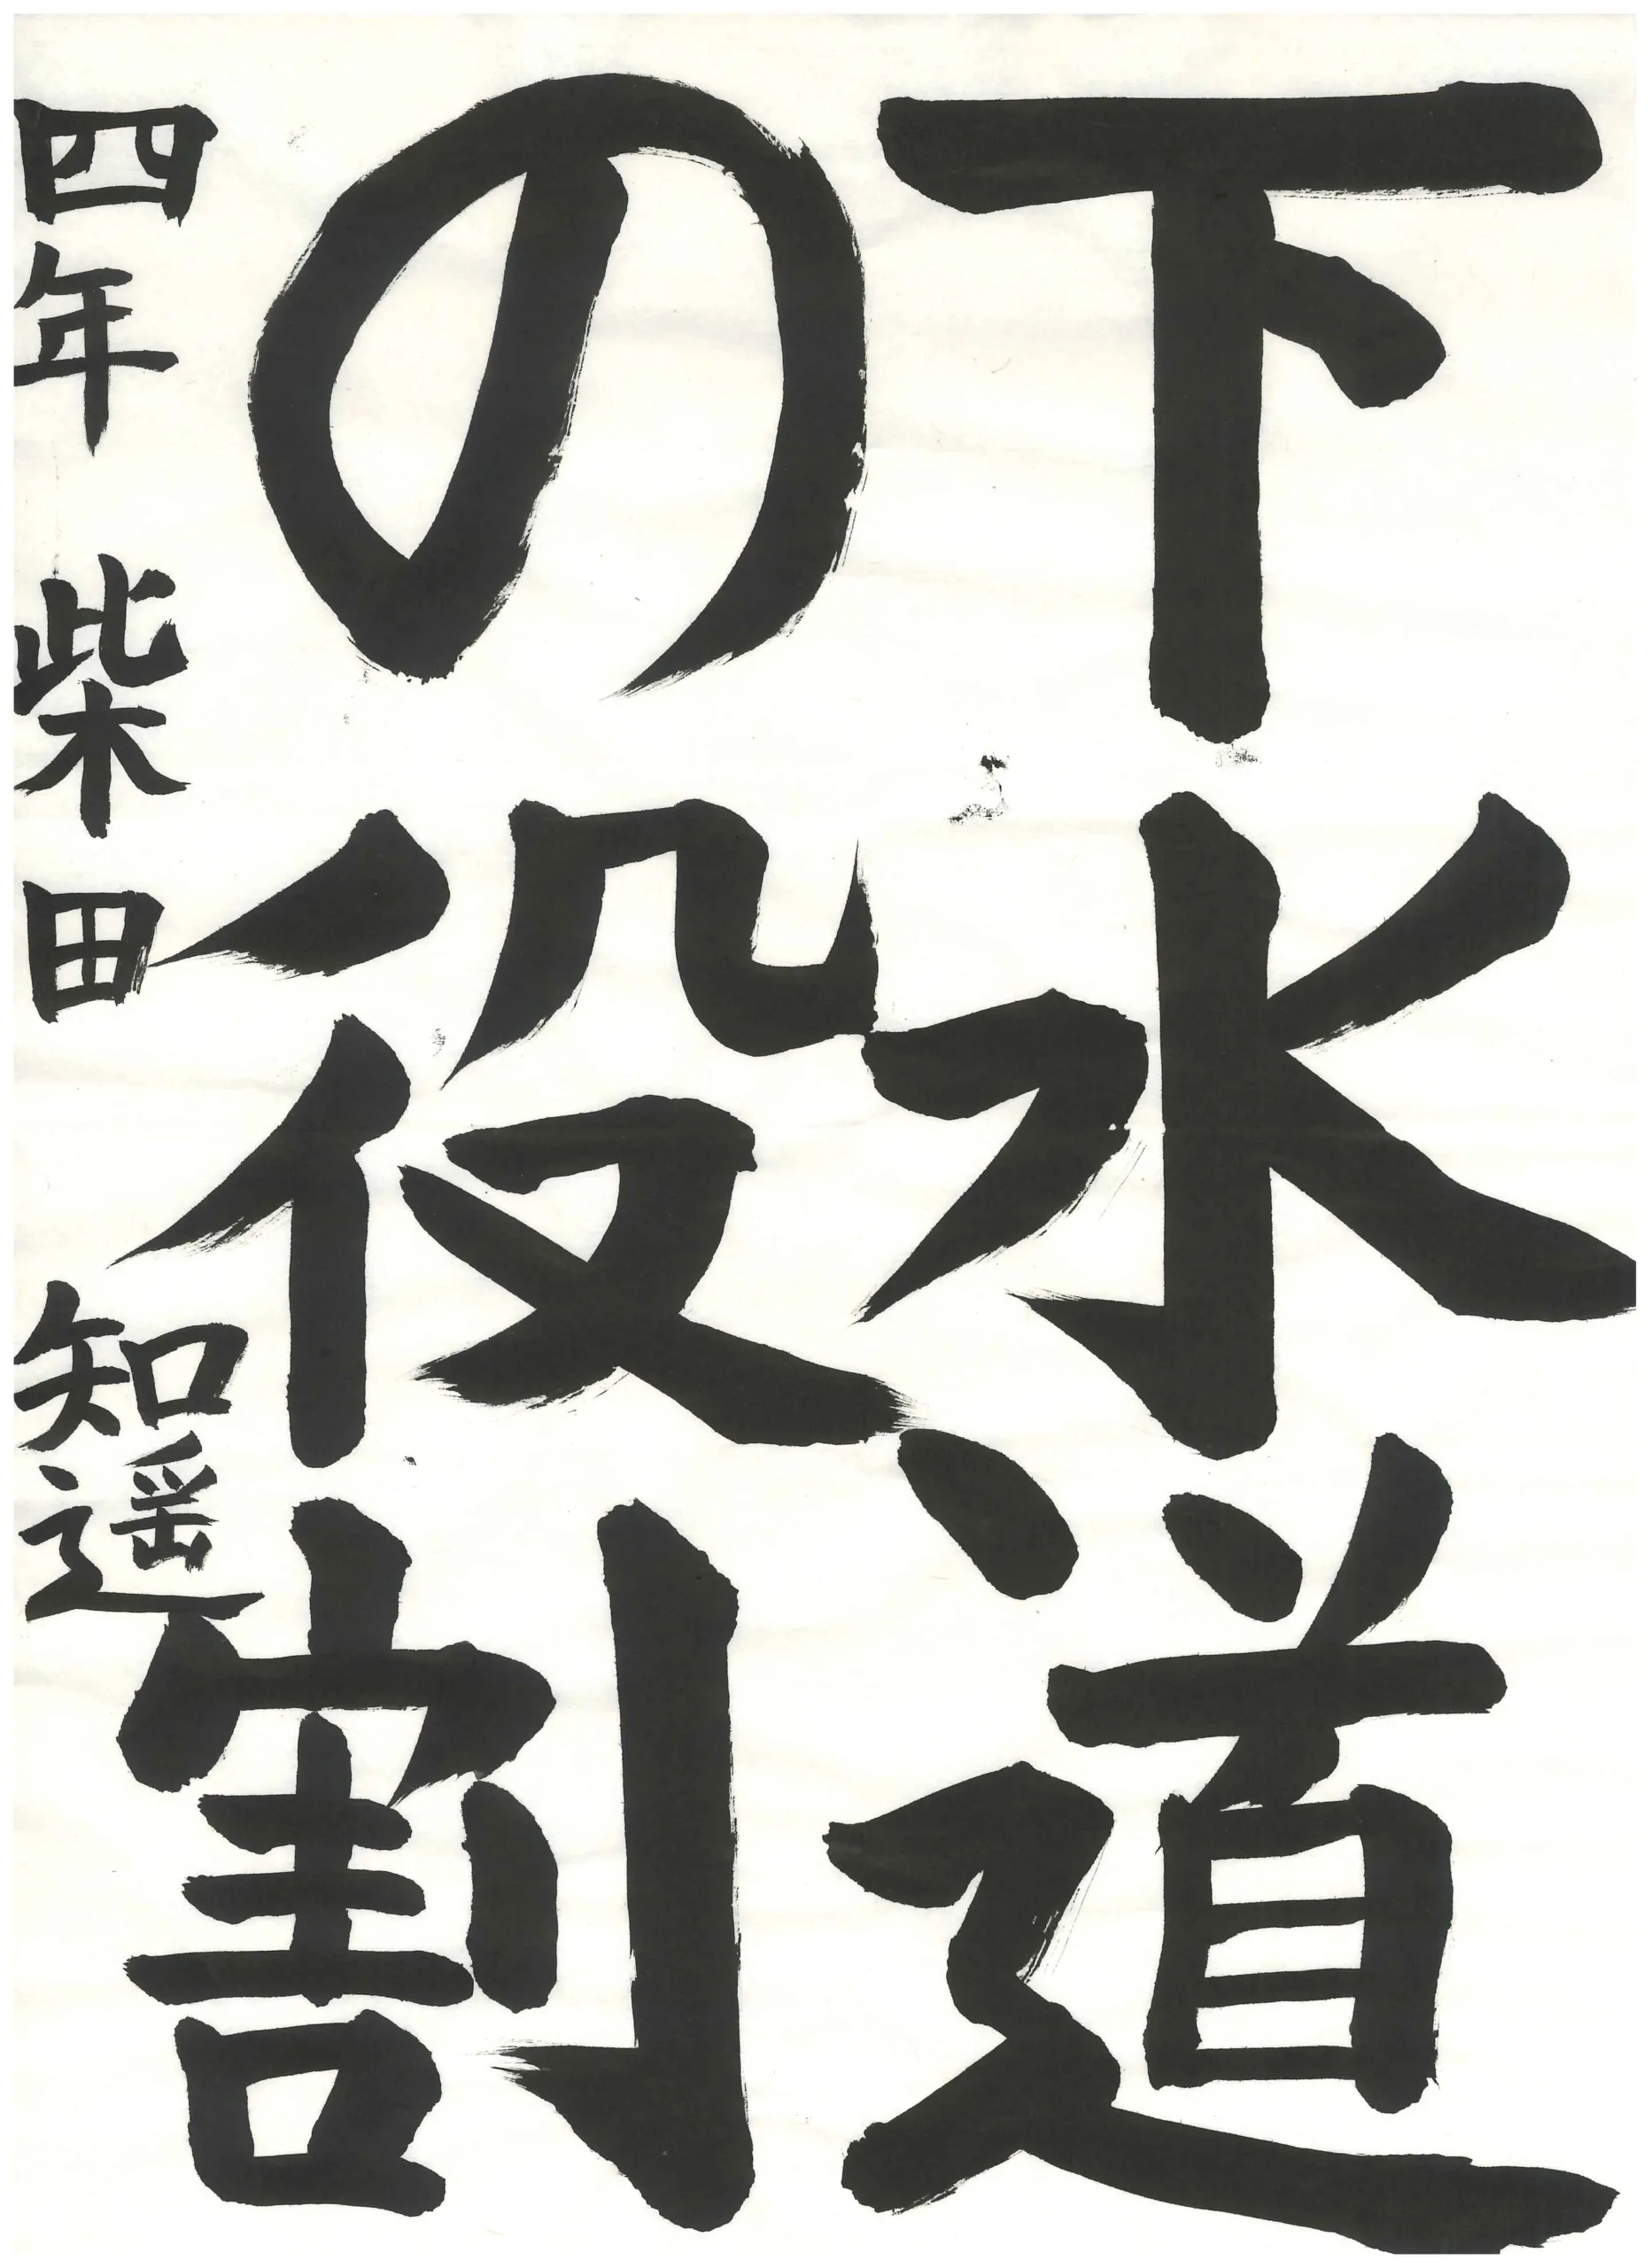 下水道
の役割
四年 柴田 知遥